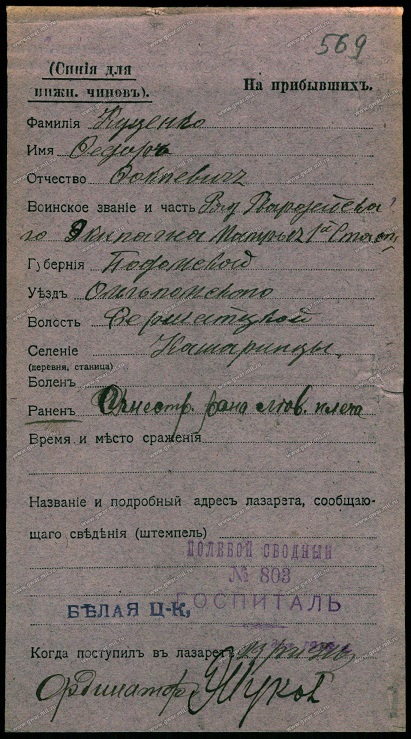 569
(Синія для
нижн. чиновъ).
На прибывшихъ.
Фамилія Куценко
Имя Федоръ
Отчество
Воинское званіе и часть Ряд Гвардейска
го Экипажа Матросъ
Губернія Подольской
Уѣздъ Ольгопольского
Волость
Селеніе Кошаринцы
(деревня, станица)
Боленъ
Раненъ Огнестр. рана лѣв. плеча
Время и мѣсто сраженія
Названіе и подробный адресъ лазарета, сообщаю-
щаго свѣдѣнія (штемпель)
ПОЛЕВОЙ СВОДНЫЙ
№ 803
ГОСПИТАЛЬ
БѢЛАЯ Ц-К,
Когда поступилъ въ лазаретъ
Ординаторъ